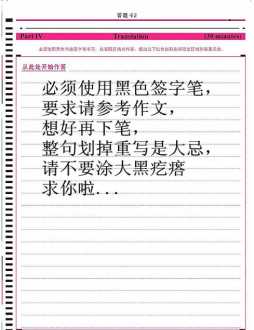 答题卡2
Part IV Translation (30 minutes)
从此处开始作答
必须使用黑色签字笔，
要求请参考作文，
想好再下笔，
整句划掉重写是大忌，
请不要涂大黑疙瘩
求你啦...